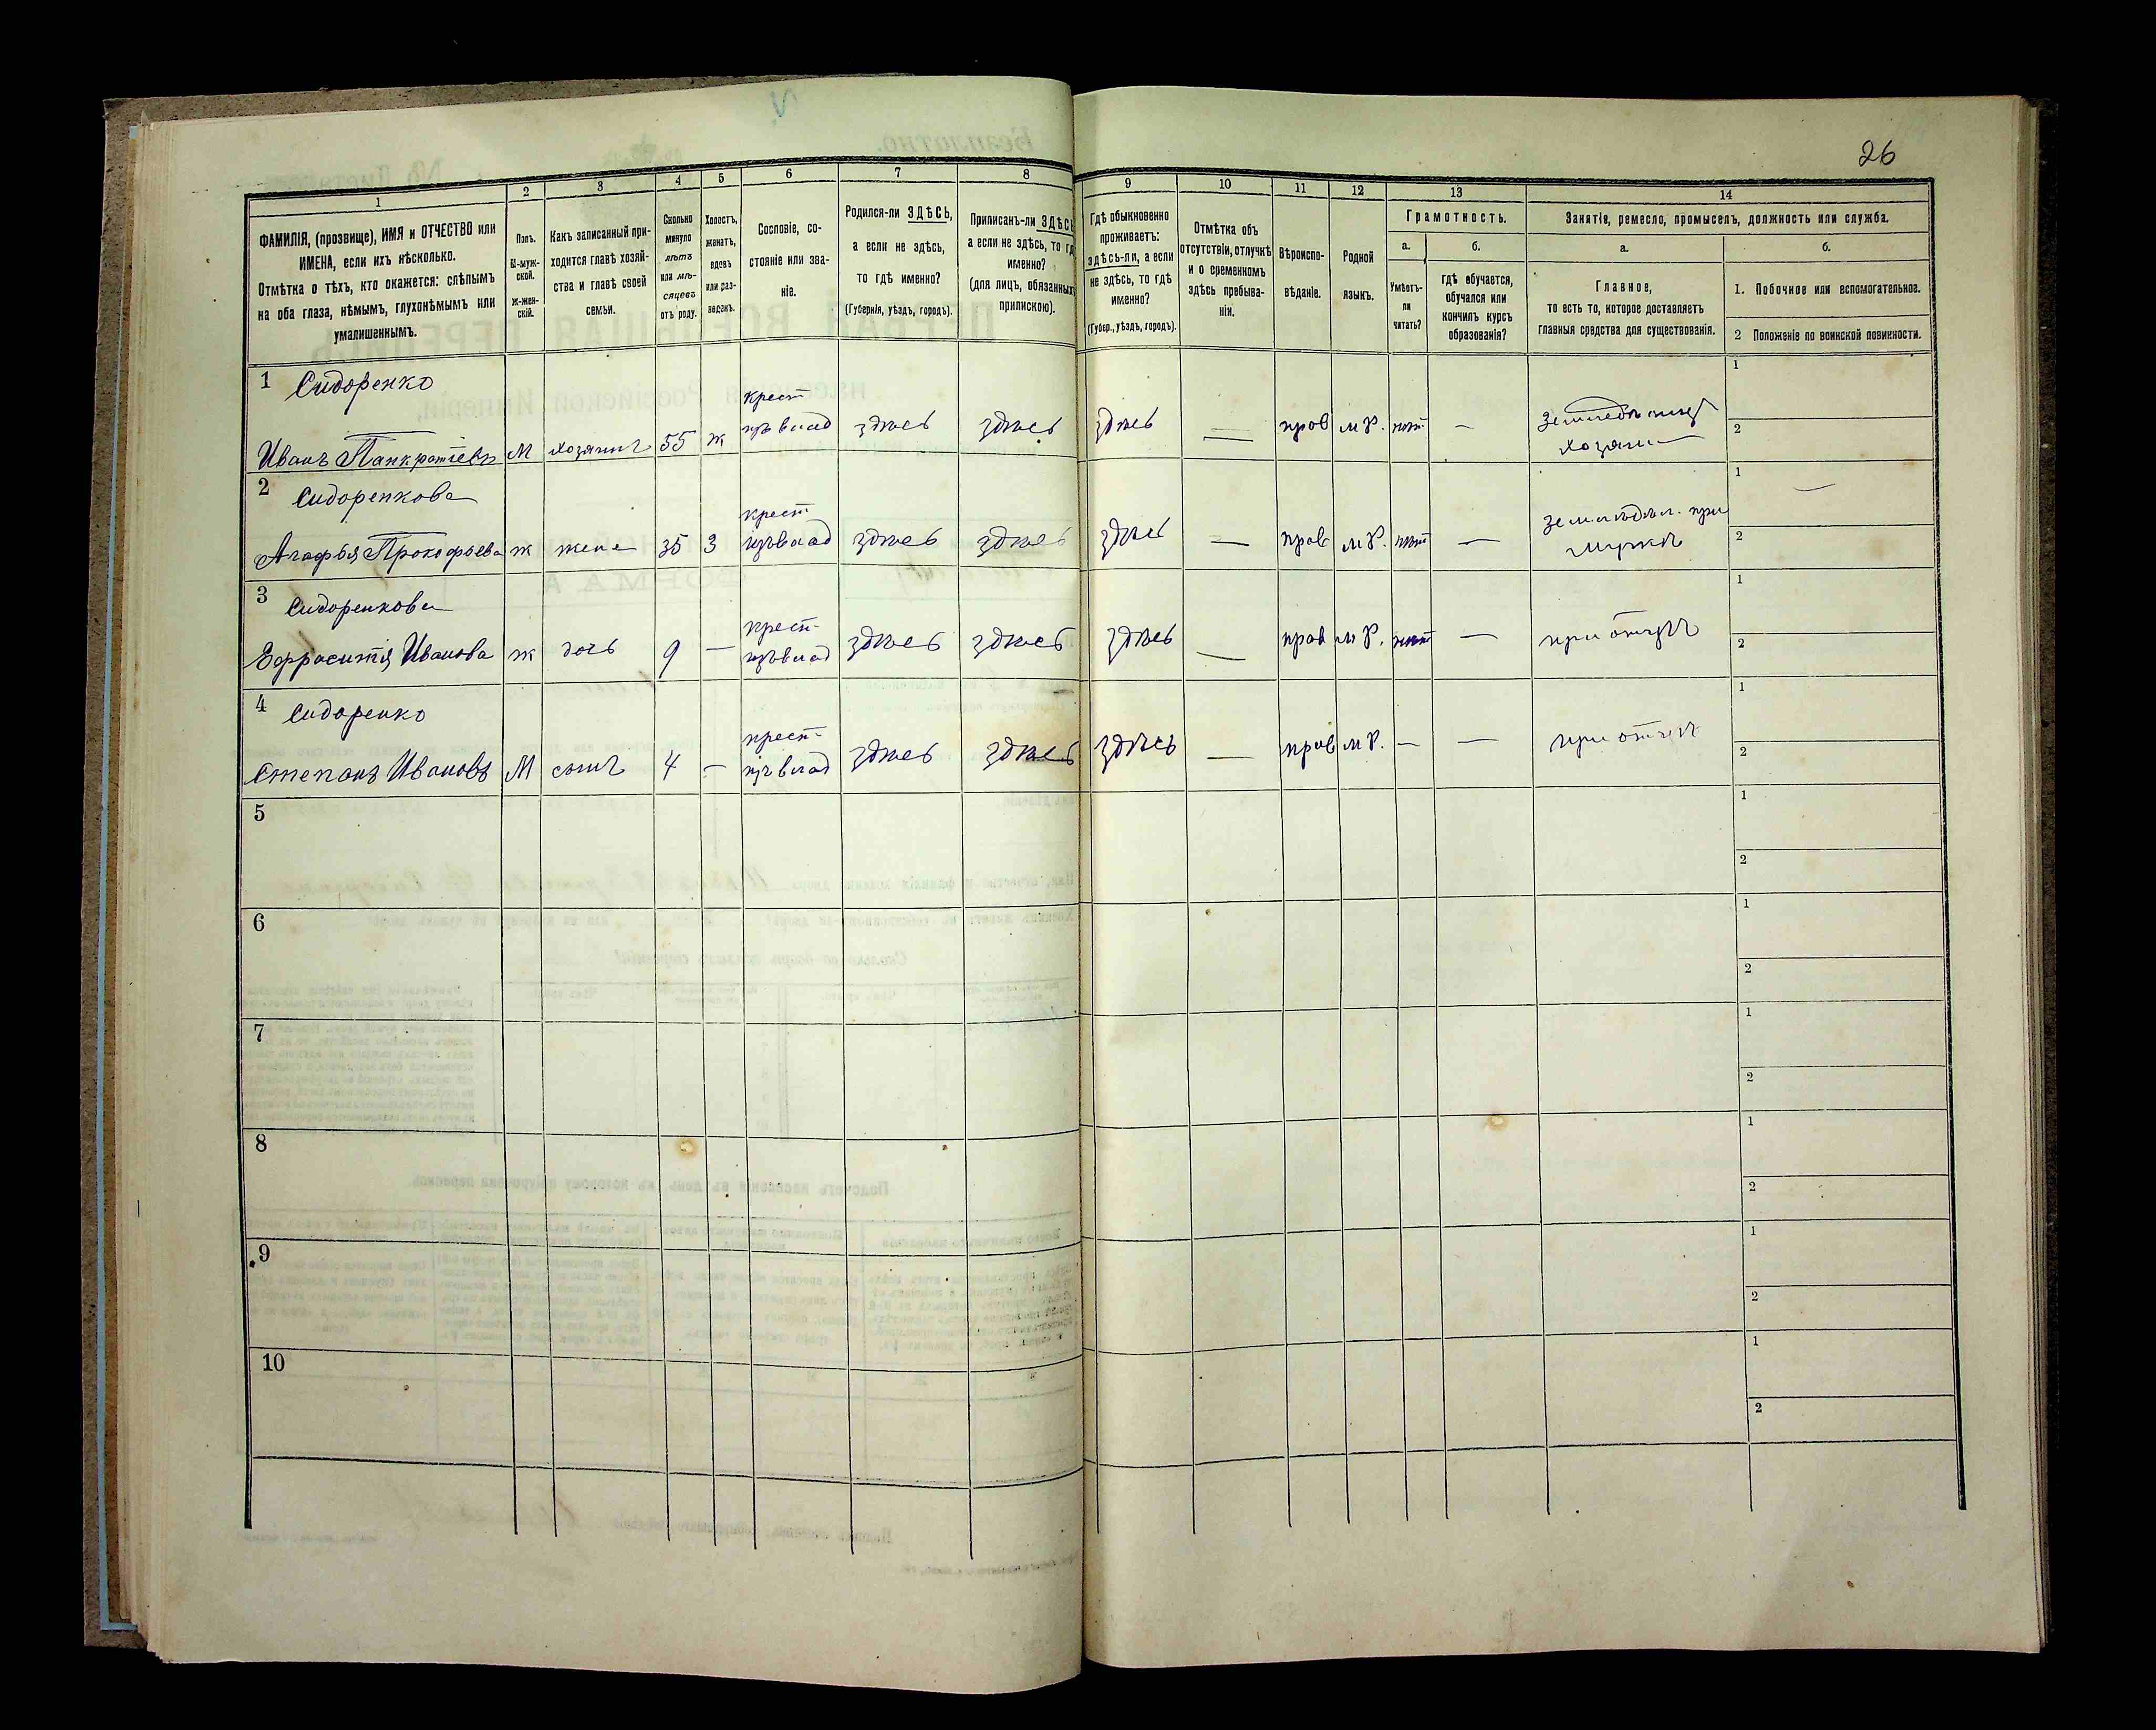 26
1 2 3 4 5 6 7 8 9 10 11 12 13 14
ФАМИЛІЯ, (прозвище), ИМЯ и ОТЧЕСТВО или
ИМЕНА, если ихъ нѣсколько.
Отмѣтка о тѣхъ, кто окажется: слѣпымъ
на оба глаза, нѣмымъ, глухонѣмымъ или
умалишеннымъ.
Полъ.
М-муж-
ской.
Ж-жен-
скій.
Какъ записанный при-
ходится главѣ хозяй-
ства и главѣ своей
семьи.
Сколько
минуло
лѣтъ
или мѣ-
сяцевъ
отъ роду.
Холостъ,
женатъ,
вдовъ
или раз-
веденъ.
Сословіе, со-
стояніе или зва-
ніе.
Родился-ли ЗДѢСЬ,
а если не здѣсь,
то гдѣ именно?
(Губернія, уѣздъ, городъ).
Приписанъ-ли ЗДѢСЬ
а если не здѣсь, то гдѣ
именно?
(для лицъ, обязанныхъ
припискою).
Гдѣ обыкновенно
проживаетъ:
здѣсь-ли, а если
не здѣсь, то гдѣ
именно?
(Губер., уѣздъ, городъ).
Отмѣтка объ
отсутствіи, отлучкѣ
и о временномъ
здѣсь пребыва-
ніи.
Вѣроиспо-
вѣданіе.
Родной
языкъ.
Грамотность.
а.
Умѣетъ-
ли
читать?
б.
гдѣ обучается,
обучался или
кончилъ курсъ
образованія?
Занятіе, ремесло, промыселъ, должность или служба.
а.
Главное,
то есть то, которое доставляетъ
главныя средства для существованія.
б.
1. Побочное или вспомогательное.
2 Положеніе по воинской повинности.
1 Сидоренко
Иванъ Панкратіевъ М хозяинъ 55 ж
крест
изъ влад здѣсь здѣсь здѣсь — прав м.р. нѣт —
хозяин
1
2
2 Сидоренкова
Агафья Прокофьева ж жена 35 З
крест
изъ влад здѣсь здѣсь здѣсь — прав м.р. нѣт —
земледѣл. при
мужѣ
1 —
2
3 Сидоренкова
Ефросинія Иванова ж дочь 9 —
крест-
изъ влад здѣсь здѣсь здѣсь — прав м.р. нѣт — при отцѣ
1
2
4 Сидоренко
Степанъ Ивановъ М сынъ 4 —
крест-
изъ влад здѣсь здѣсь здѣсь — прав м.р. — — при отцѣ
1
2
5
1
2
6
1
2
7
1
2
8
1
2
9
1
2
10
1
2